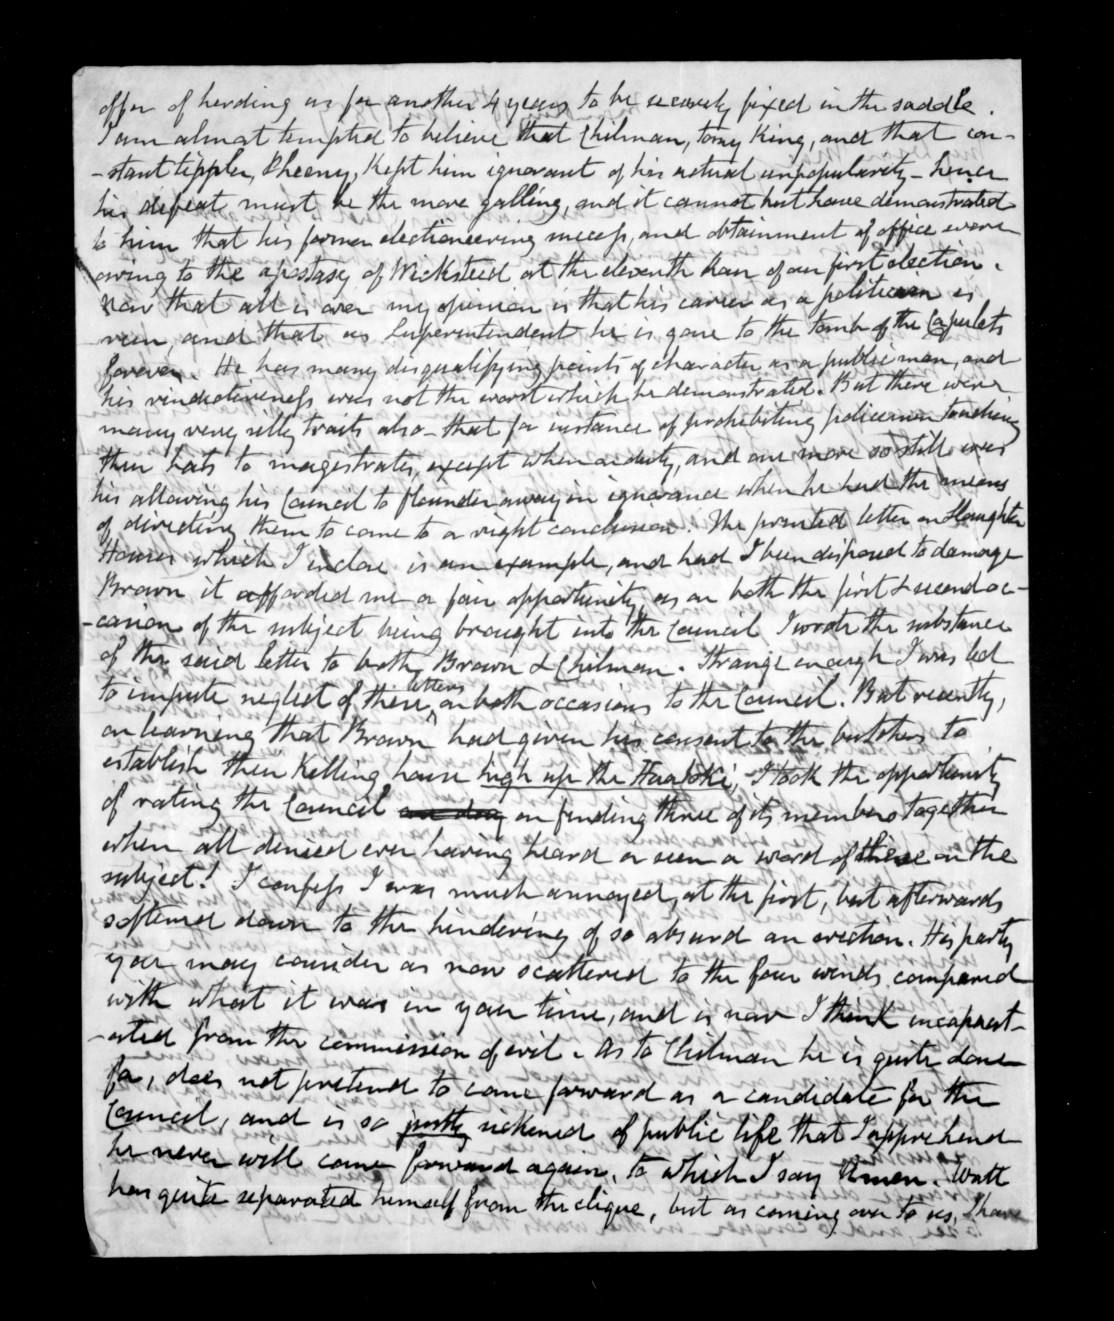 offer of herding us for another 4 years to be securely fixed in the saddle.
I am almost tempted to believe that Chilman, tomy King, and that con-
-stant tippler, Pheeny, kept him ignorant of his actual unpopularity - hence
his defeat must be the more galling, and it cannot but have demonstrated
to him that his former electioneering success, and obtainment of office were
owing to the apostasy of Wicksteed at the eleventh hour of our first election.
Now that all is over my opinion is that his career as a politician is
run, and that as Superintendent he is gone to the tomb of the Capulets
forever. He has many disqualifying points of character as a public man, and
his vindictiveness was not the worst which he demonstrated. But there were
many very silly traits also - that for instance of prohibiting policemen touching
their hats to magistrates, except when on duty, and one more so still was
his allowing his Council to flounder away in ignorance when he had the means
of directing them to come to a right conclusion. The printed letter on Slaughter
Houses which I inclose is an example, and had I been disposed to damage
Brown it afforded me a fair opportunity, as on both the first & second oc-
-casion of the subject being brought into the Council I wrote the substance
of the said letter to both Brown & Chilman. Strange enough I was led
to impute neglect of these letters on both occasions to the Council. But recently,
on learning that Brown had given his consent to the butchers to
establish their killing house high up the Huatoki, I took the opportunity
of rating the Council on finding three of its members together
when all denied ever having heard or seen a word of these on the
subject! I confess I was much annoyed, at the first, but afterwards
softened down to the hindering of so absurd an erection. His party
you may consider as now scattered to the four winds compared
with what it was in your time, and is now I think incapacit-
-ated from the commission of evil. As to Chilman he is quite done
for, does not pretend to come forward as a candidate for the
Council, and is so justly sickened of public life that I apprehend
he never will come forward again, to which I say Amen. Watt
has quite separated himself from the clique, but as coming over to us, I have